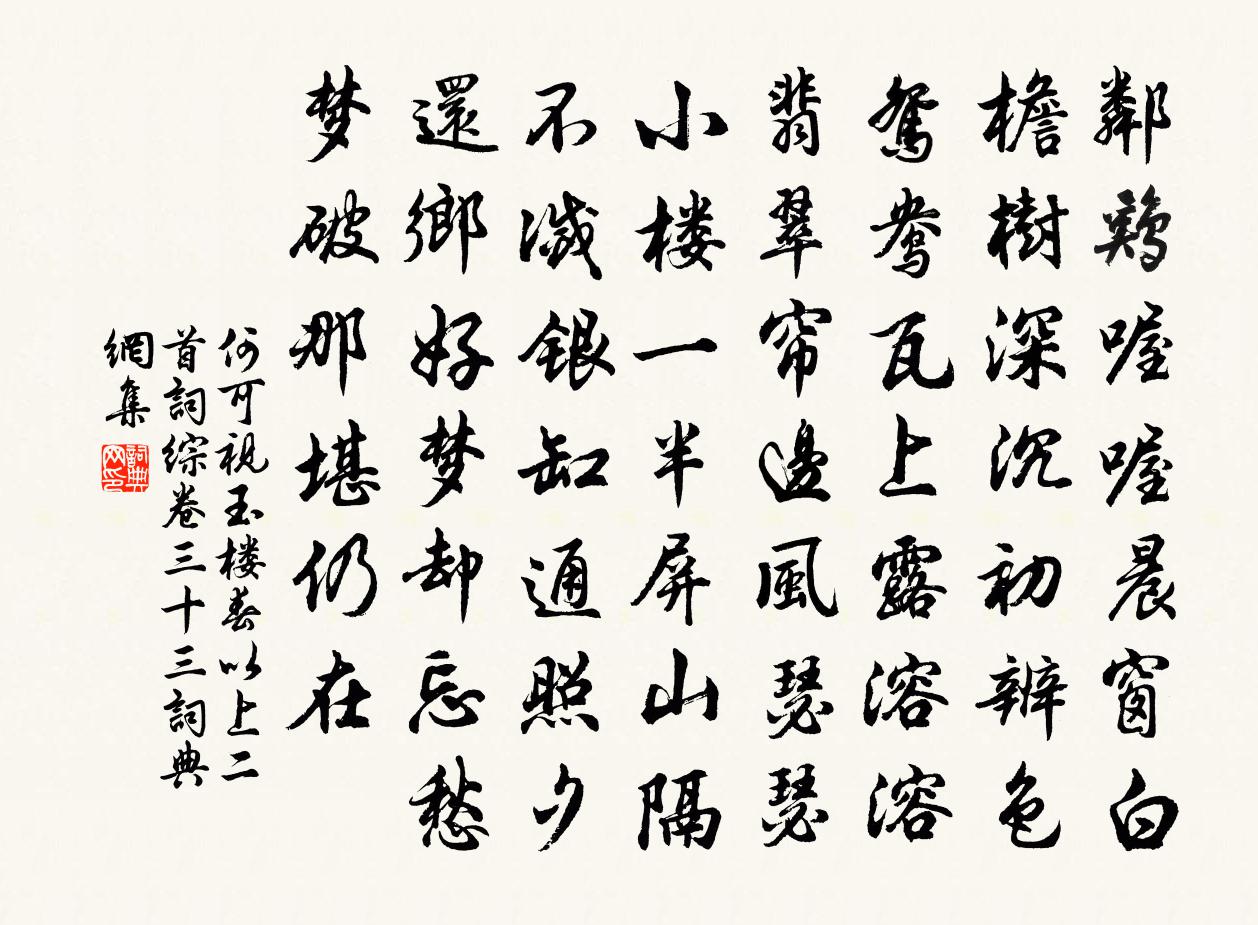 鄰鷄喔喔晨窗白
檐樹深沉初辨色
鴛鴦瓦上露溶溶
翡翠帘邊風瑟瑟
小楼一半屏山隔
不滅銀缸通照夕
還鄉好梦却忘愁
梦破那堪仍在
何可視玉楼春以上二
首詞綜卷三十三詞典
網集
詞典
网印